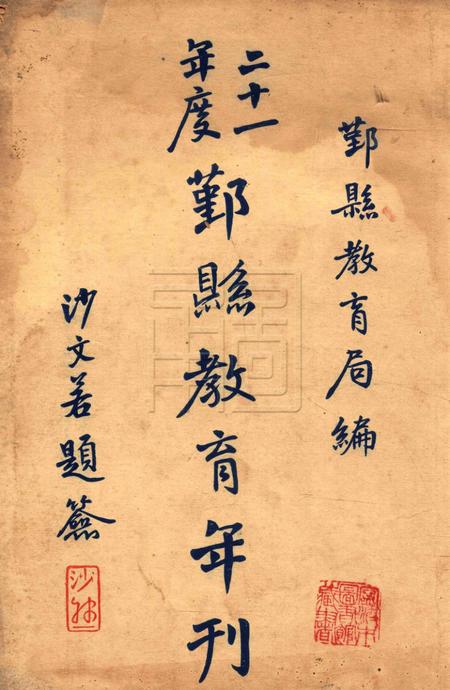 鄞縣教育局編
二十一
年度
鄞縣教育年刊
沙文若題簽